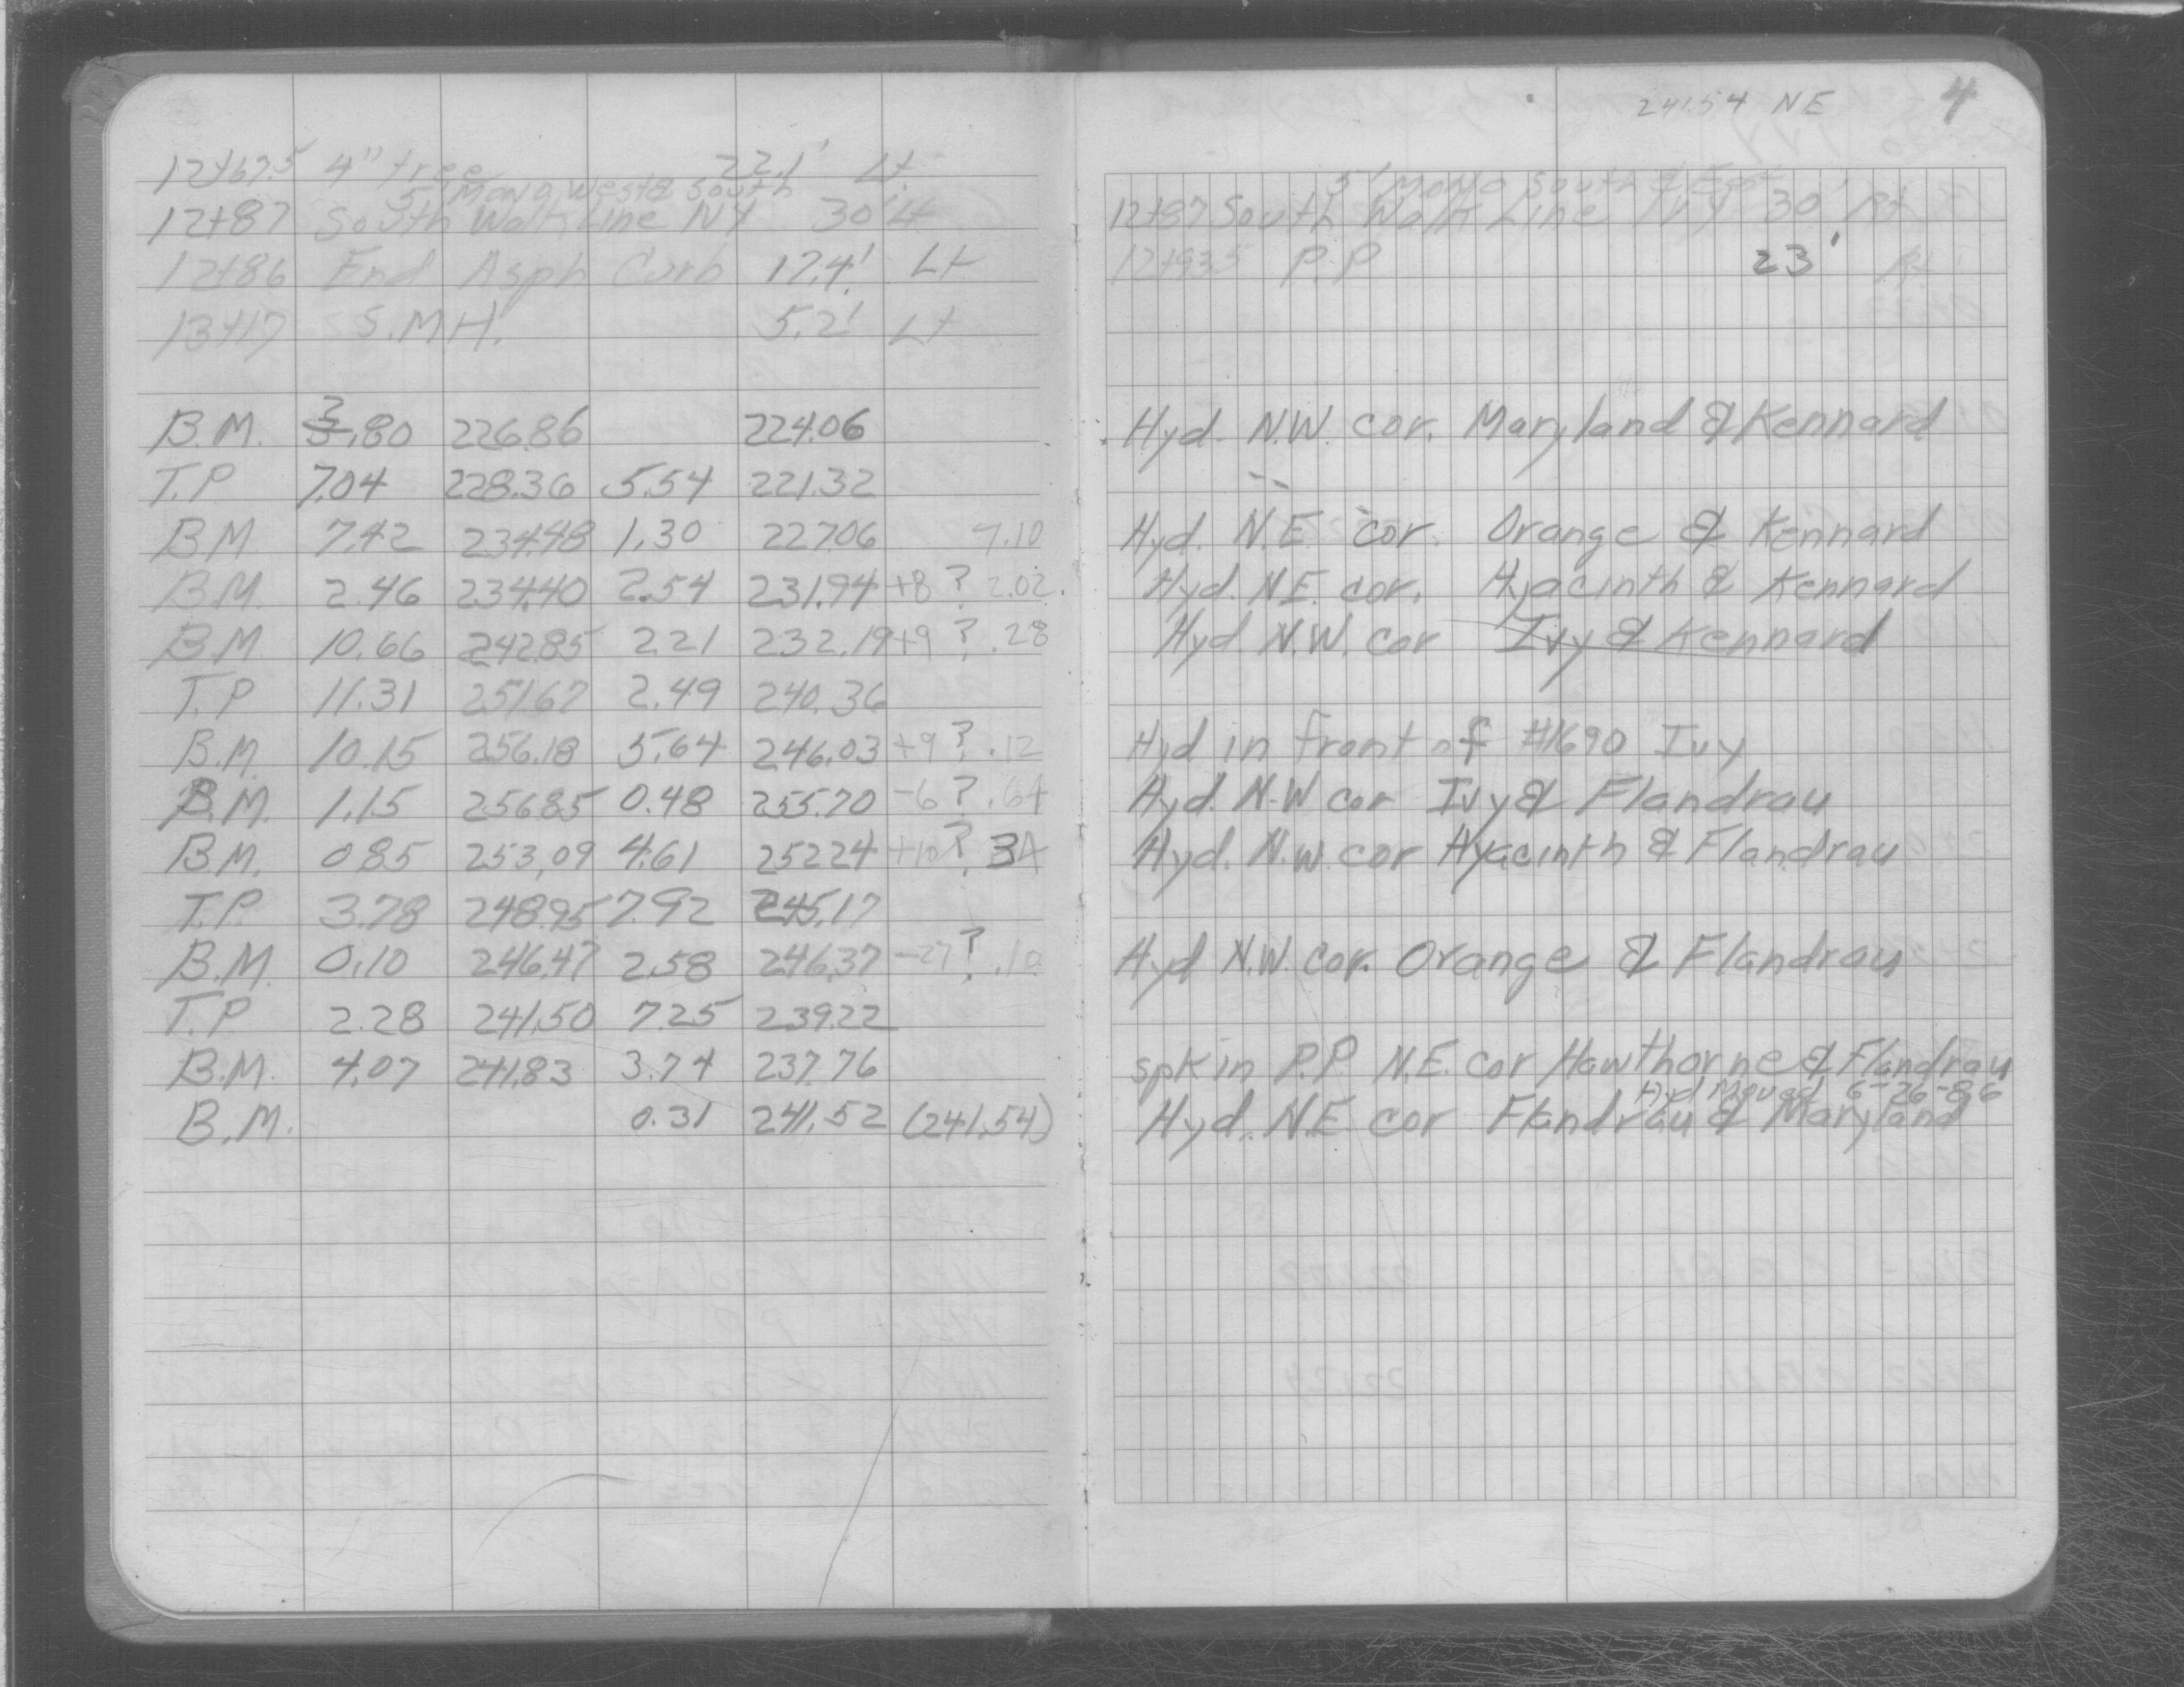 12+67.5 4" tree 22.1' Lt
5' Mono west & South
12+87 South Walk Line IVY 30' Lt
12+86 End Asph Curb 17.4' Lt
13+17 S.M.H. 5.2' Lt
B.M. 2.80 226.86 224.06
T.P 7.04 228.36 5.54 221.32
B.M 7.42 234.48 1.30 227.06 7.10
B.M. 2.46 234.40 2.54 231.94 +8 ? 2.02
B.M 10.66 242.85 2.21 232.19 +9 ? .28
T.P 11.31 251.67 2.49 240.36
B.M. 10.15 256.18 5.64 246.03 +9 ? .12
B.M. 1.15 256.85 0.48 255.70 -6 ? .64
B.M. 0.85 253.09 4.61 252.24 +10 ? .34
T.P. 3.78 248.95 7.92 245.17
B.M. 0.10 246.47 2.58 246.37 -27 ? .10
T.P 2.28 241.50 7.25 239.22
B.M. 4.07 241.83 3.74 237.76
B.M. 0.31 241.52 (241.54)
241.54 NE 4
5' Mono South & East
12+87 South Walk Line Ivy 30' Rt
12+93.5 P.P 23' Rt
Hyd. N.W. cor. Maryland & Kennard
Hyd. N.E. cor. Orange & Kennard
Hyd. N.E. cor. Hyacinth & Kennard
Hyd N.W. cor Ivy & Kennard
Hyd in front of #1690 Ivy
Hyd. N.W cor Ivy & Flandrau
Hyd. N.W. cor Hyacinth & Flandrau
Hyd N.W. cor. Orange & Flandrau
spk in P.P N.E. cor Hawthorne & Flandrau
Hyd Moved 6-26-86
Hyd. N.E. cor Flandrau & Maryland